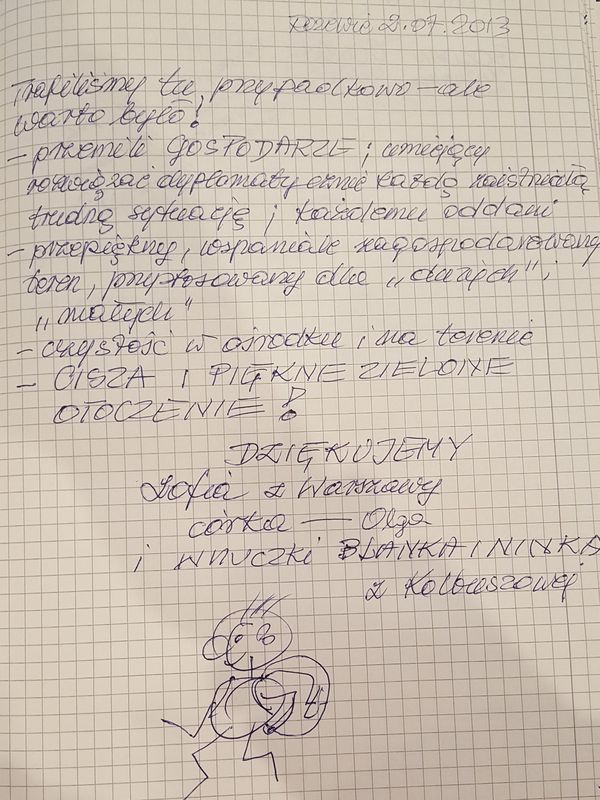 2.07.2013
Trafiliśmy tu przypadkowo – ale
warto było!
– przemili GOSPODARZE; umiejący
rozwiązać dyplomatycznie każdą zaistniałą
trudną sytuację i każdemu oddani
– przepiękny, wspaniale zagospodarowany
teren, przystosowany dla „dużych" i
„małych"
– czystość w ośrodku i na terenie
– CISZA I PIĘKNE ZIELONE
OTOCZENIE!
DZIĘKUJEMY
Zofia z Warszawy
córka — Olga
i WNUCZKI BLANKA I NINKA
z Kolbuszowej